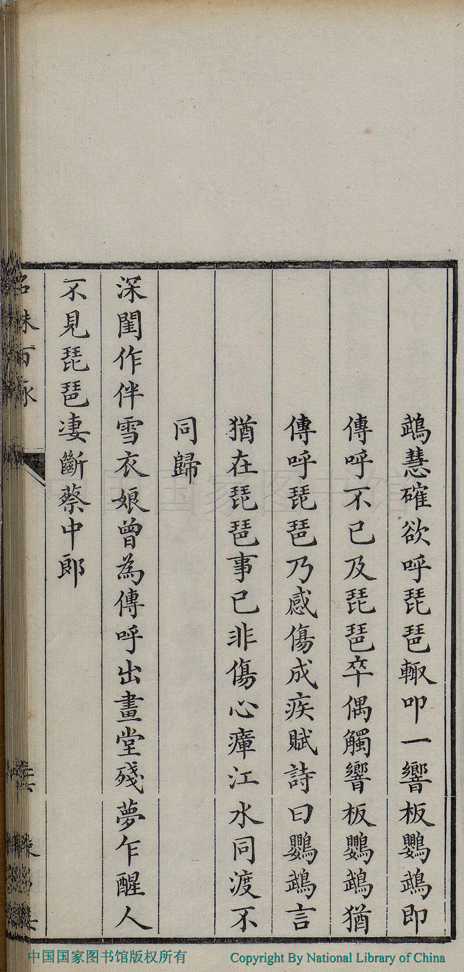 鵡慧確欲呼琵琶輙叩一響板鸚鵡即
傳呼不已及琵琶卒偶觸響板鸚鵡猶
傳呼琵琶乃感傷成疾賦詩曰鸚鵡言
猶在琵琶事已非傷心瘴江水同渡不
同歸
深閨作伴雪衣娘曾為傳呼出畫堂殘夢乍醒人
不見琵琶凄斷蔡中郎
名姝百詠
中国国家图书馆版权所有
Copyright By National Library of China